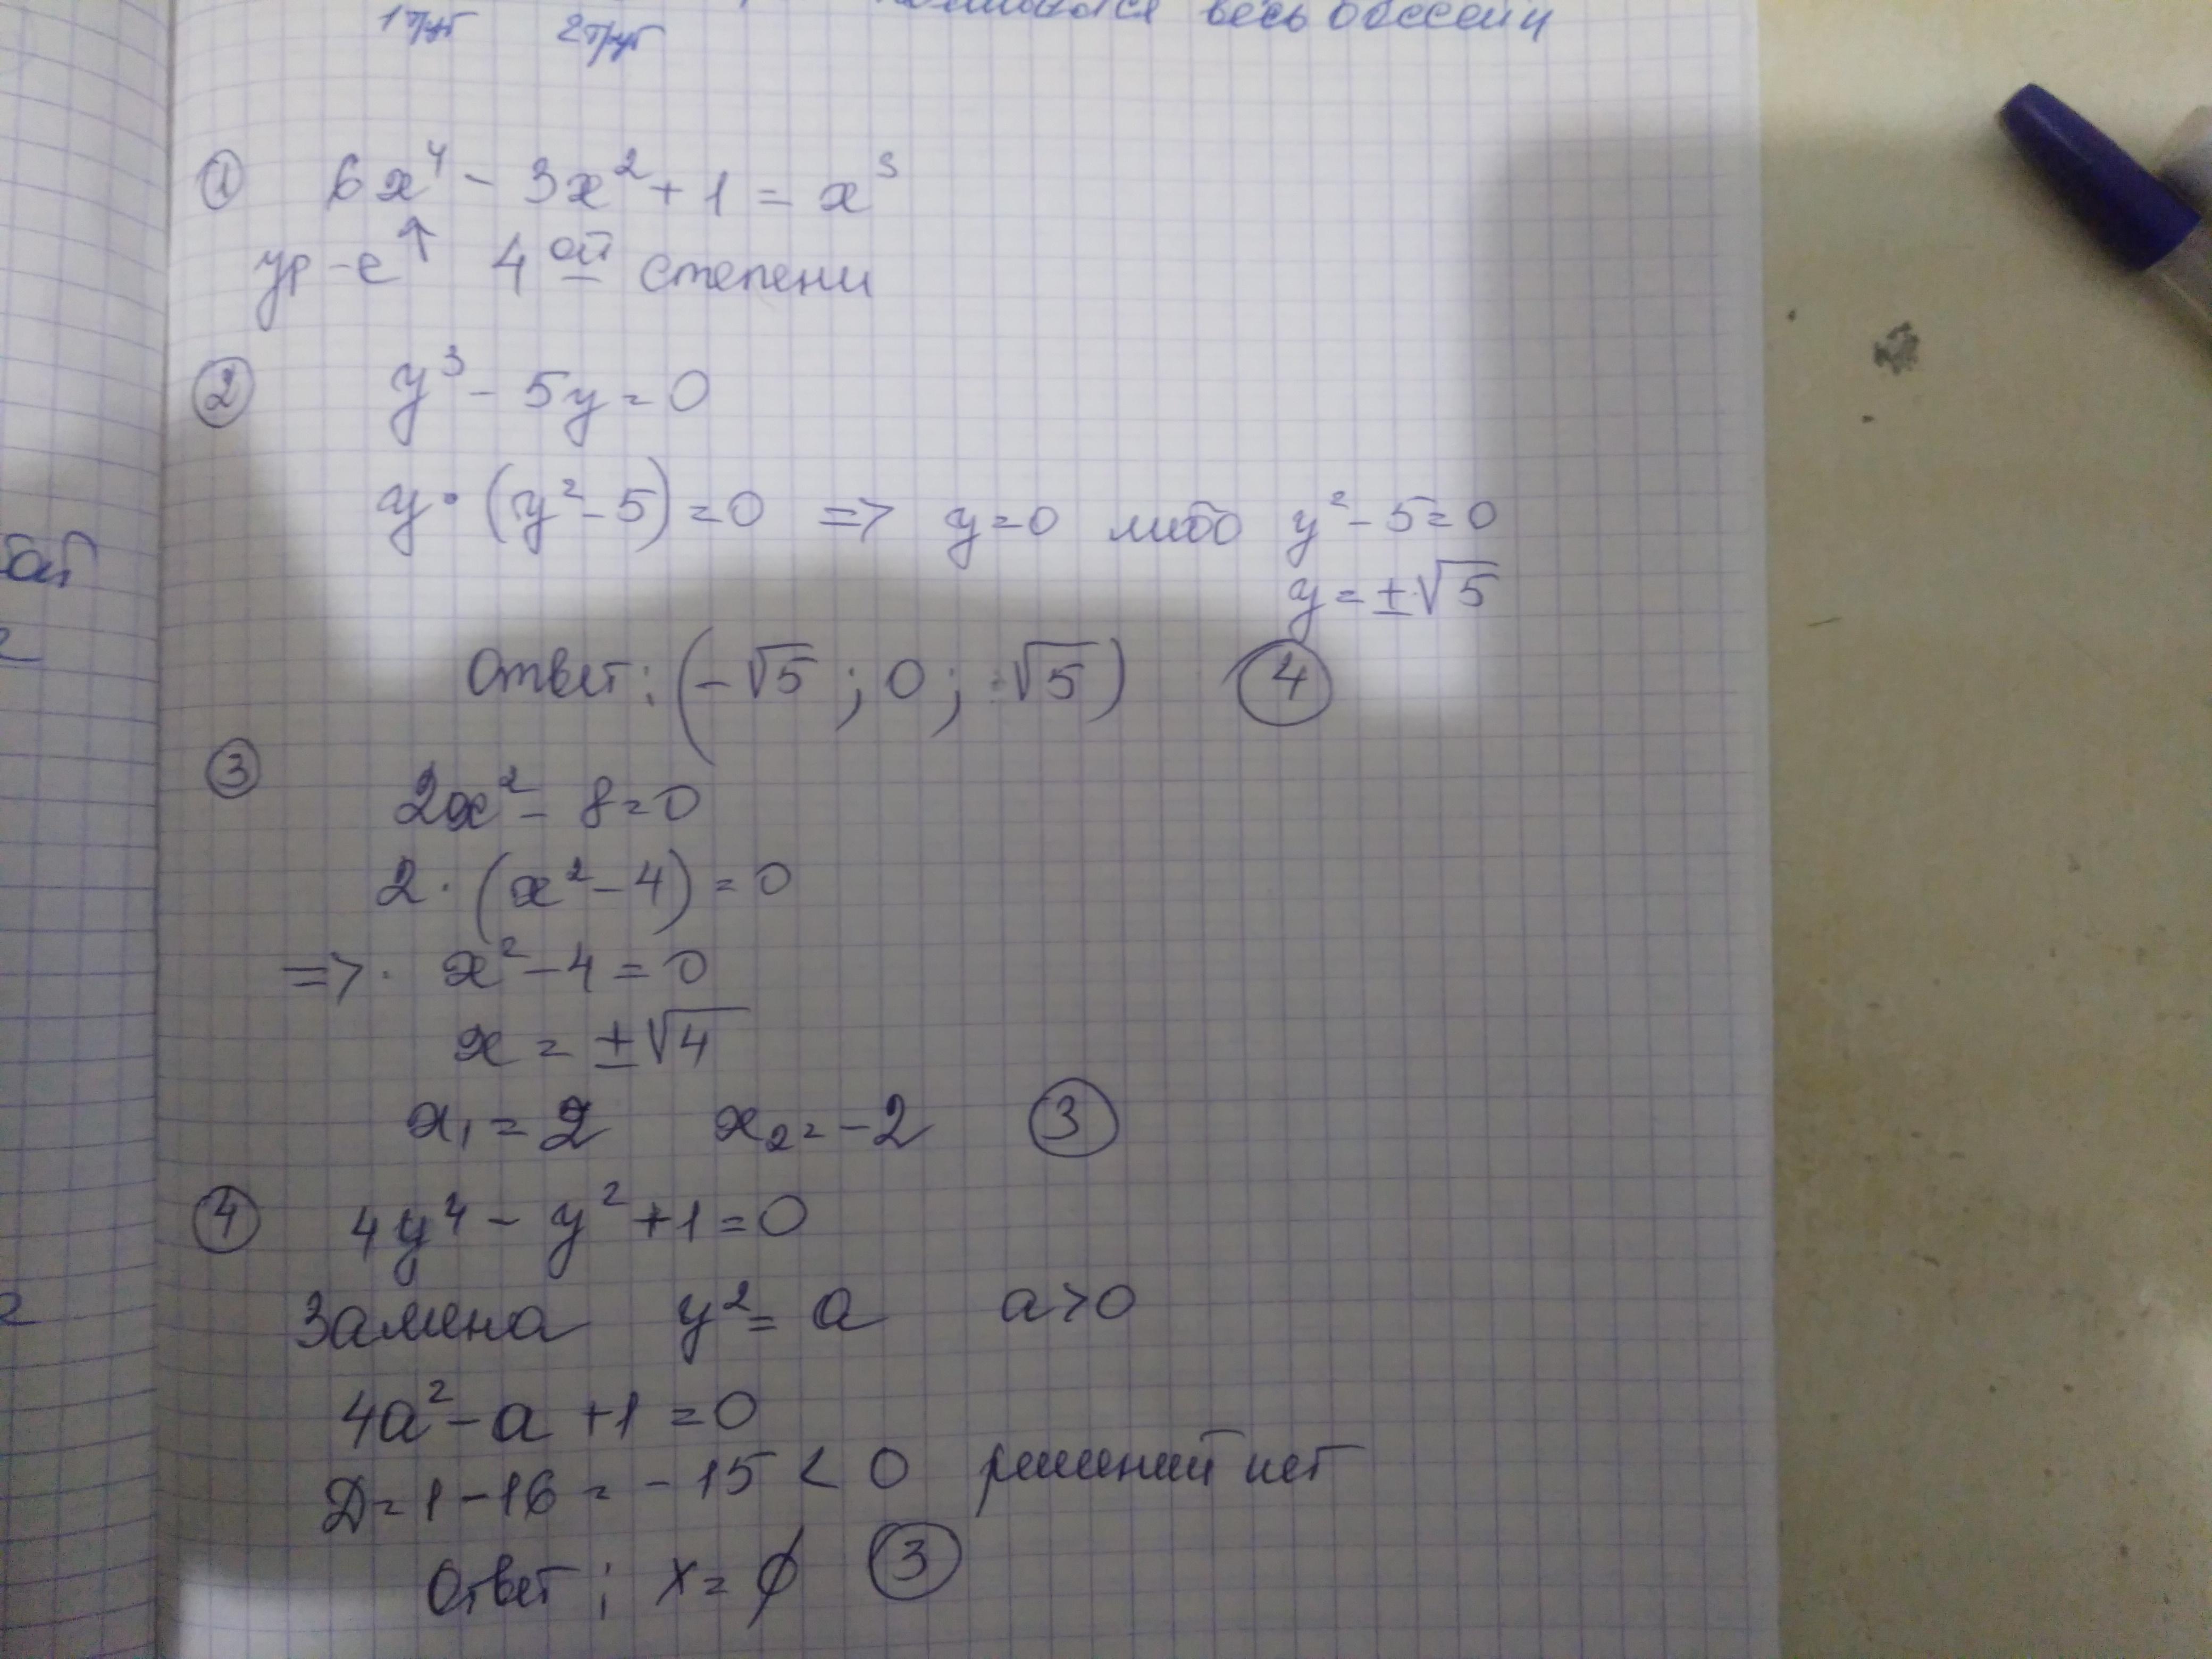 1 труб 2 труб весь бассейн
① 6x⁴ - 3x² + 1 = x³
ур-е ↑ 4 ой степени
② y³ - 5y = 0
y · (y² - 5) = 0 => y = 0 либо y² - 5 = 0
y = ±√5
Ответ: (-√5 ; 0 ; √5) ④
③
2x² - 8 = 0
2 · (x² - 4) = 0
=> x² - 4 = 0
x = ±√4
x₁ = 2 x₂ = -2 ③
④ 4y⁴ - y² + 1 = 0
Замена y² = a a > 0
4a² - a + 1 = 0
Д = 1 - 16 = -15 < 0 решений нет
Ответ: x = ∅ ③